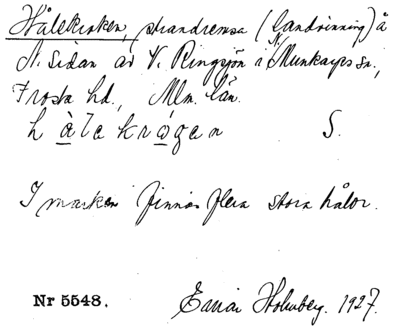 Hålekroken, strandremsa (landvinning) å
N. sidan av V. Ringsjön i N. Munkarps sn.,
Frosta hd., Mlm. län.
hålekrógen S.
I marken finnas flera stora hålor.
Nr 5548. Einar Holmberg. 1927.